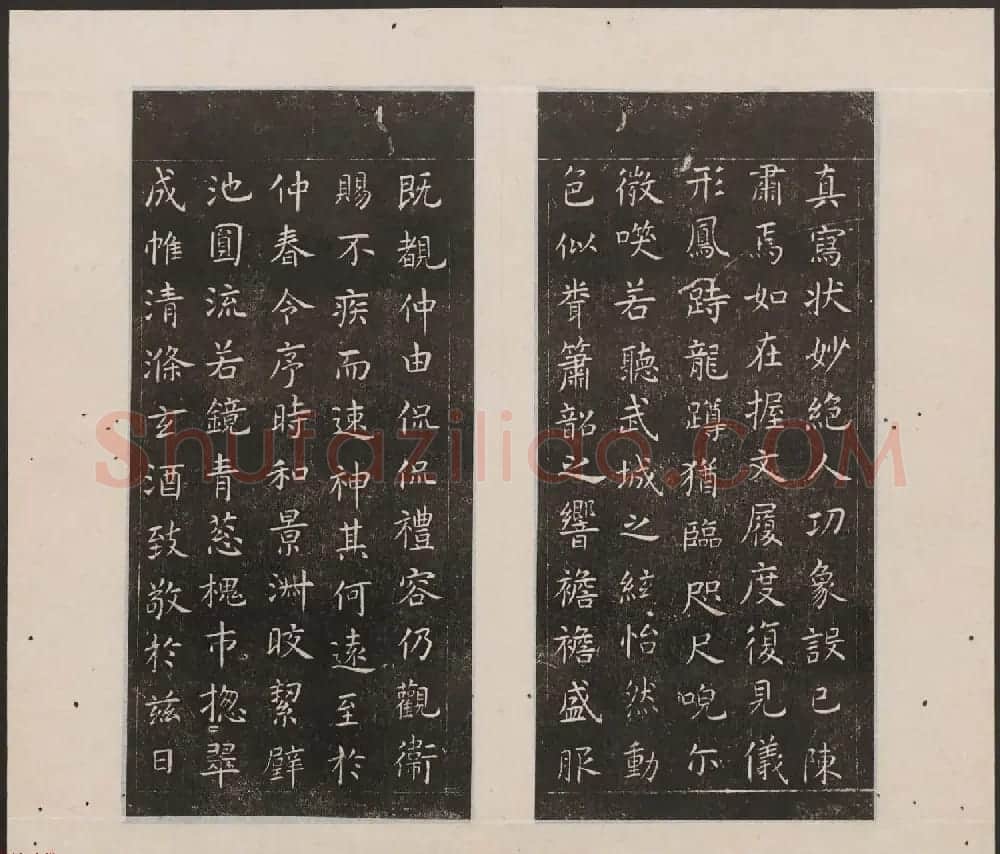 真寫狀妙絕人功象設已陳
肅焉如在握文履度復見儀
形鳳跱龍蹲猶臨咫尺唲尒
微咲若聽武城之絃怡然動
色似聞簫韶之響襜襜盛服
既覩仲由侃侃禮容仍觀衛
賜不疾而速神其何遠至於
仲春令序時和景淑皎絜璧
池圓流若鏡青葱槐市揔翠
成帷清滌玄酒致敬於兹日
Shufaziliao.COM